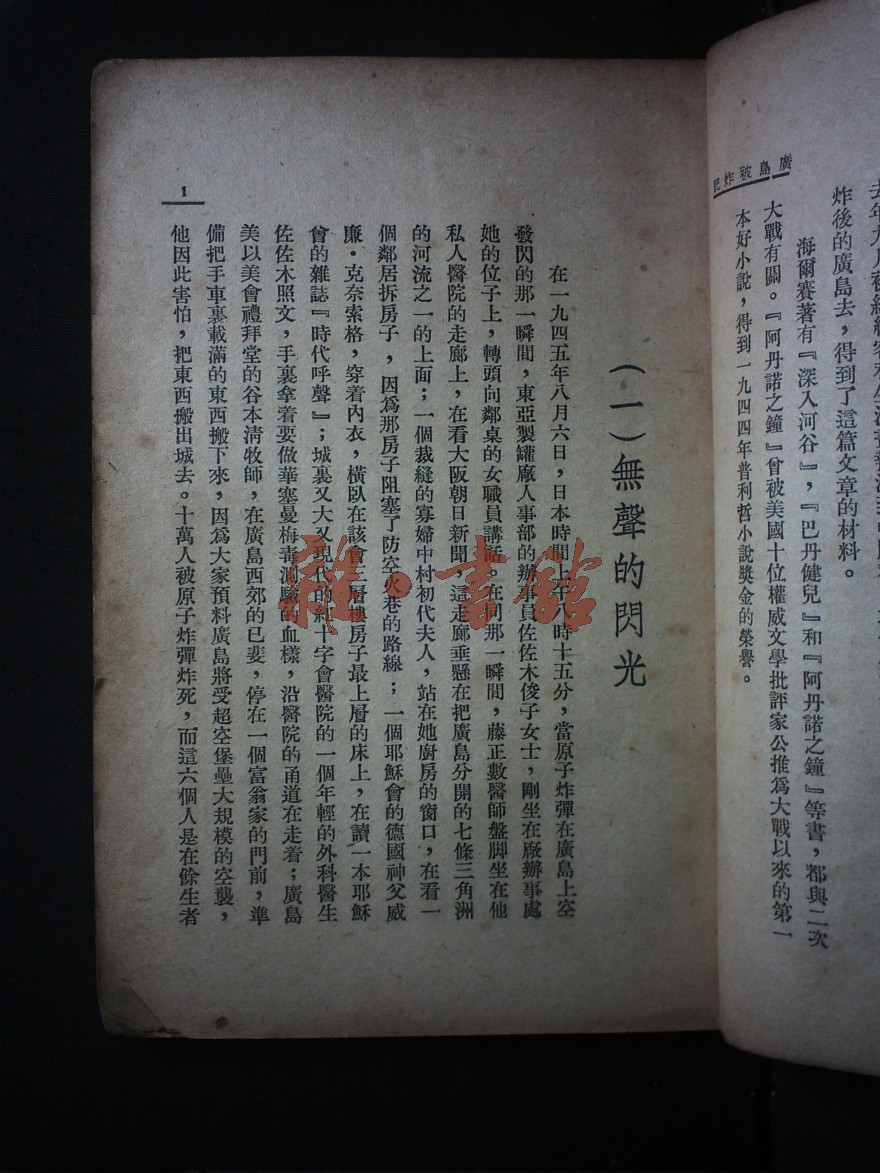 炸後的廣島去，得到了這篇文章的材料。
海爾賽著有『深入河谷』，『巴丹健兒』和『阿丹諾之鐘』等書，都與二次
大戰有關。『阿丹諾之鐘』曾被美國十位權威文學批評家公推爲大戰以來的第一
本好小說，得到一九四四年普利哲小說獎金的榮譽。
廣島被炸記
（一）無聲的閃光
在一九四五年八月六日，日本時間上午八時十五分，當原子炸彈在廣島上空
發閃的那一瞬間，東亞製罐廠人事部的辦事員佐佐木俊子女士，剛坐在廠辦事處
她的位子上，轉頭向鄰桌的女職員講話。在同那一瞬間，藤正數醫師盤脚坐在他
私人醫院的走廊上，在看大阪朝日新聞，這走廊垂懸在把廣島分開的七條三角洲
的河流之一的上面；一個裁縫的寡婦中村初代夫人，站在她廚房的窗口，在看一
個鄰居拆房子，因爲那房子阻塞了防空火巷的路線；一個耶穌會的德國神父威
廉·克奈索格，穿着內衣，橫臥在該會三層樓房子最上層的床上，在讀一本耶穌
會的雜誌『時代呼聲』；城裏又大又現代的紅十字會醫院的一個年輕的外科醫生
佐佐木照文，手裏拿着要做華塞曼梅毒測驗的血樣，沿醫院的甬道在走着；廣島
美以美會禮拜堂的谷本淸牧師，在廣島西郊的已斐，停在一個富翁家的門前，準
備把手車裏載滿的東西搬下來，因爲大家預料廣島將受超空堡壘大規模的空襲，
他因此害怕，把東西搬出城去。十萬人被原子炸彈炸死，而這六個人是在餘生者
1
雜·書館